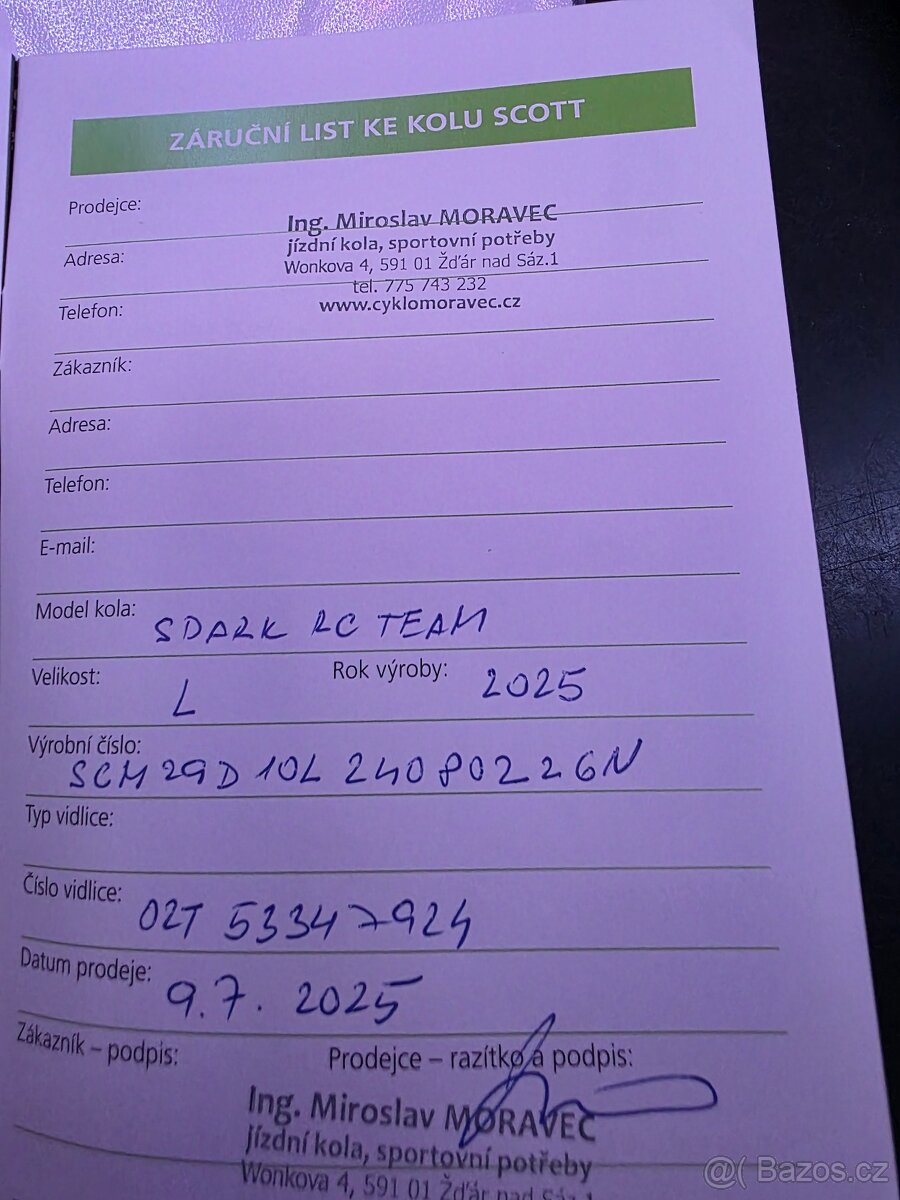 ZÁRUČNÍ LIST KE KOLU SCOTT
Prodejce:
Ing. Miroslav MORAVEC
jízdní kola, sportovní potřeby
Adresa:
Wonkova 4, 591 01 Žďár nad Sáz.1
tel. 775 743 232
Telefon:
www.cyklomoravec.cz
Zákazník:
Adresa:
Telefon:
E-mail:
Model kola: SPARK RC TEAM
Velikost: L Rok výroby: 2025
Výrobní číslo: SCM29D10L24080226N
Typ vidlice:
Číslo vidlice: 02T 53347924
Datum prodeje: 9.7. 2025
Zákazník – podpis: Prodejce – razítko a podpis:
Ing. Miroslav MORAVEC
jízdní kola, sportovní potřeby
Wonkova 4, 591 01 Žďár nad Sáz.1
@( Bazos.cz